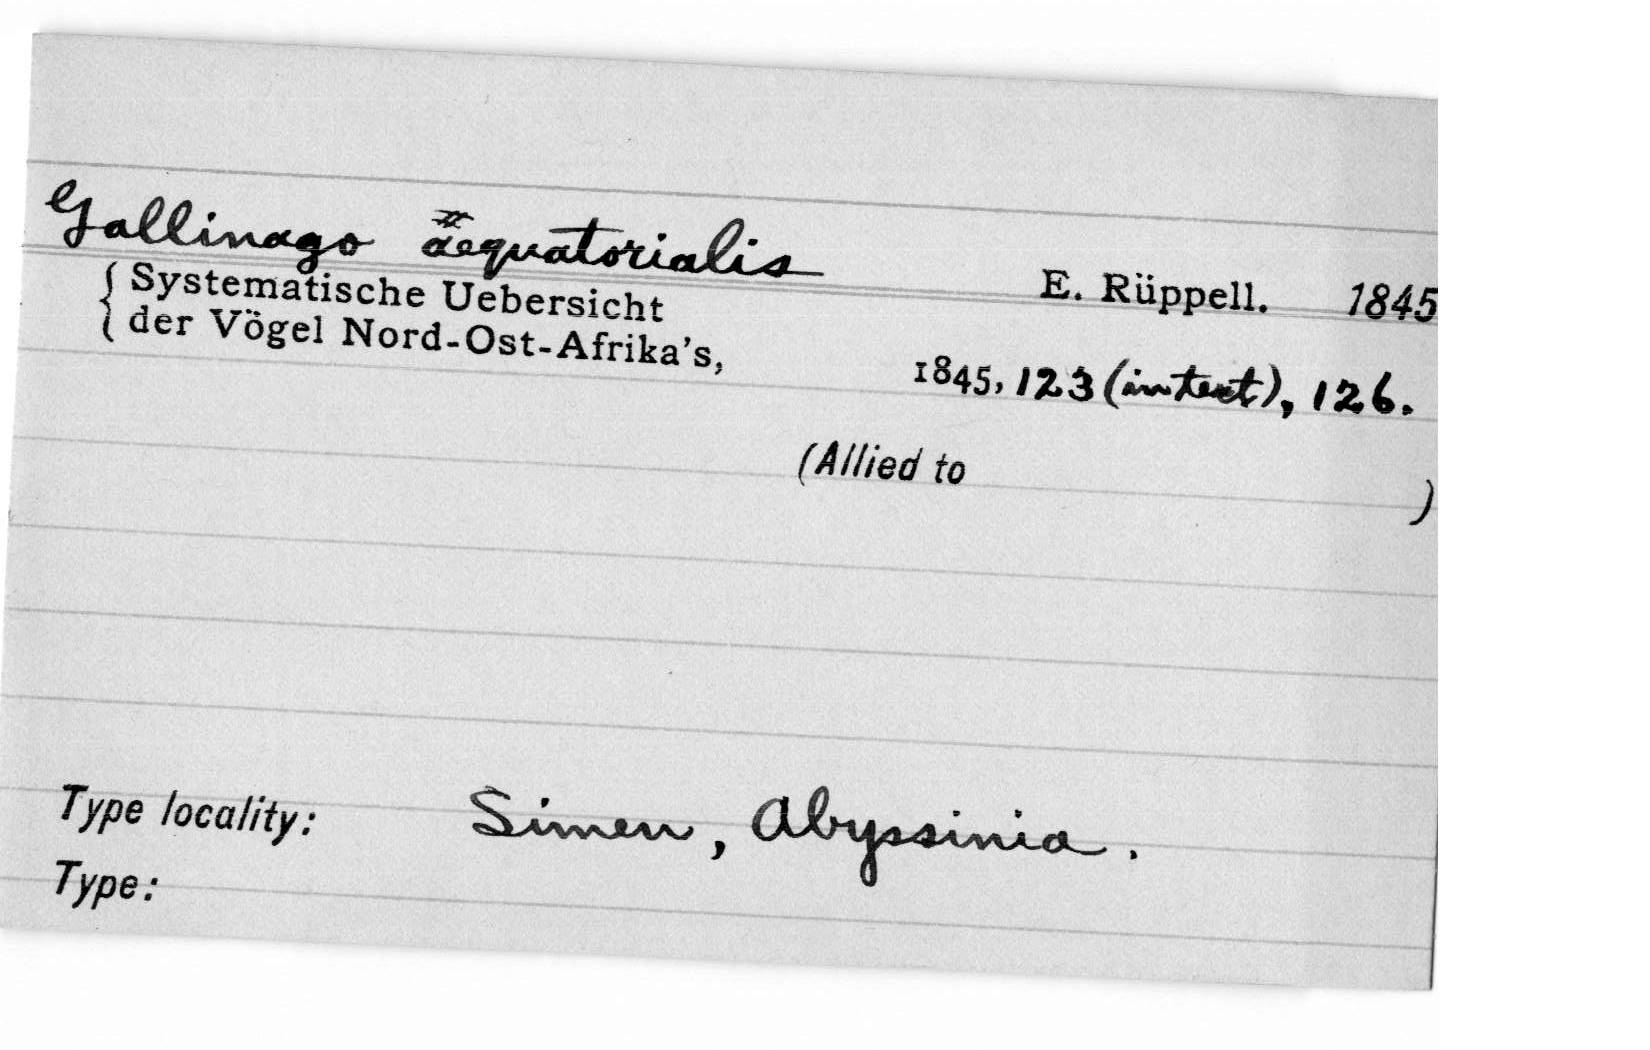 Gallinago aequatorialis
E. Rüppell. 1845
Systematische Uebersicht
der Vögel Nord-Ost-Afrika's,
1845, 123 (in text), 126.
(Allied to )
Type locality: Simen, Abyssinia.
Type: